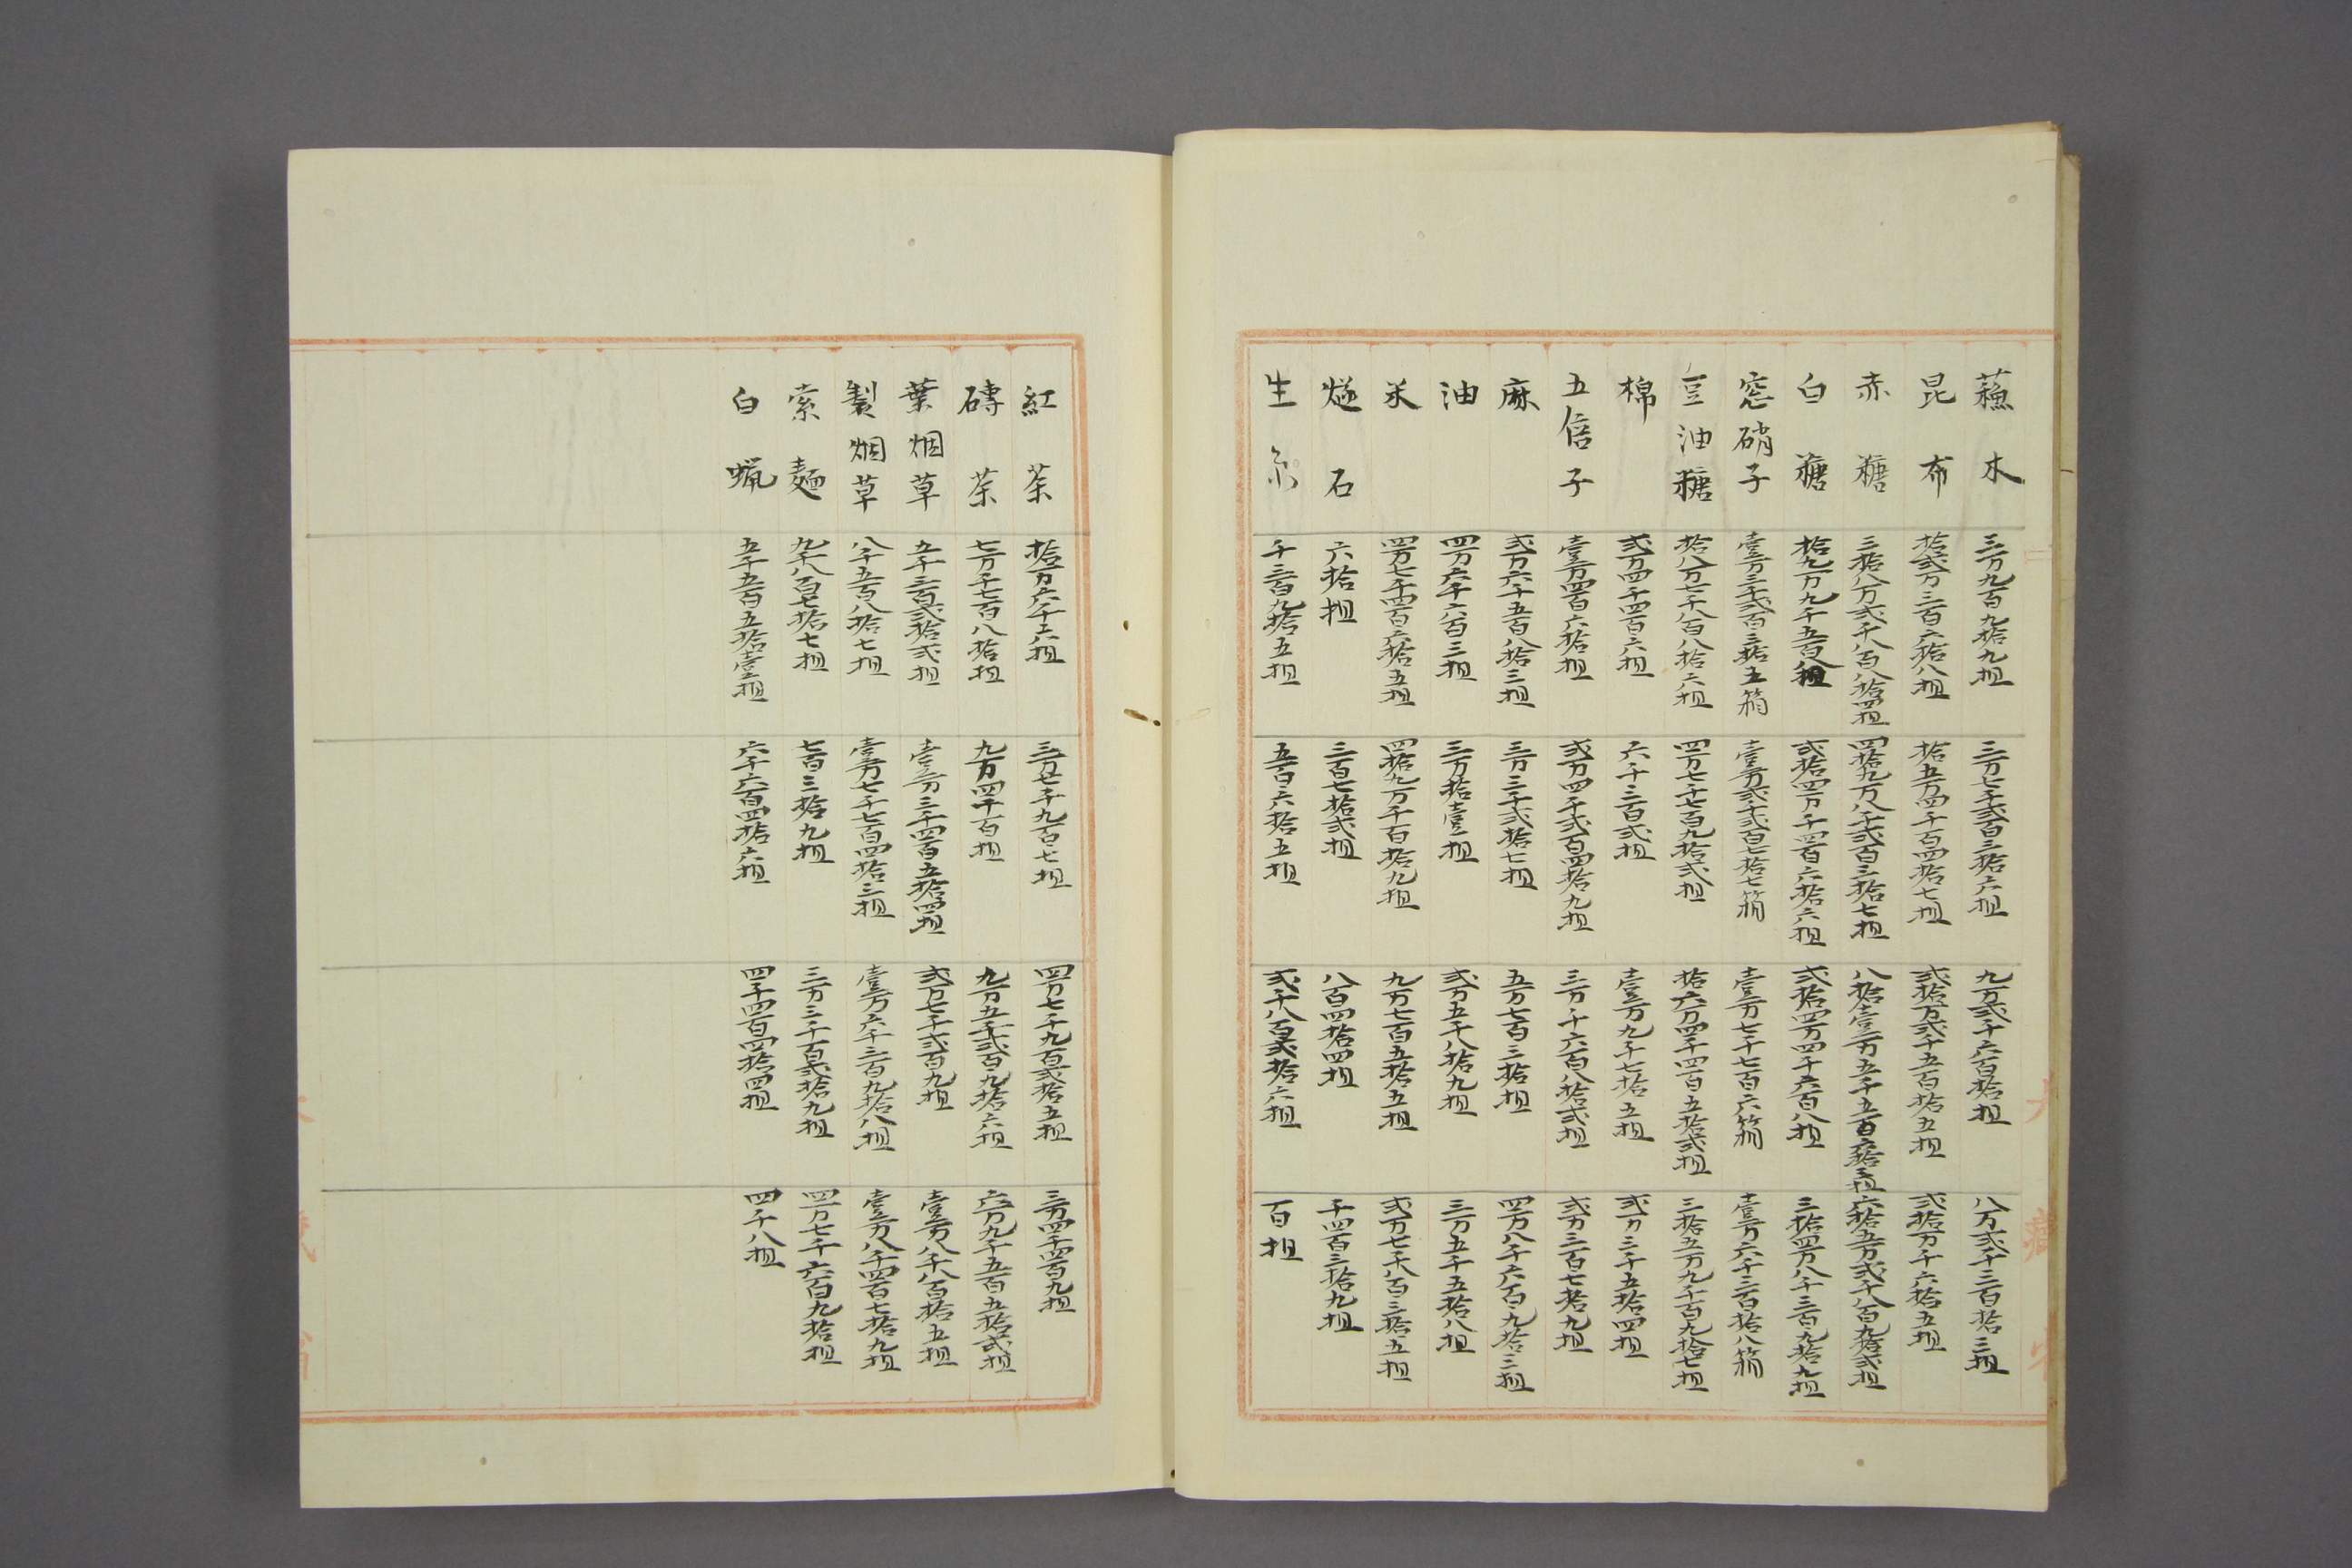 蘓木 三万九百九拾九担 三万七千弐百三拾六担 九万弐千六百拾担 八万弐千三百拾三担
昆布 拾弐万三百六拾八担 拾五万四千百四拾七担 弐拾万弐千五百拾五担 弐拾万千六拾五担
赤糖 三拾八万弐千八百八拾四担 四拾九万八千弐百三拾七担 八拾壹万五千五百六拾三担 六拾五万弐千八百九拾弐担
白糖 拾九万九千五百八担 弐拾四万千四百六拾六担 弐拾四万四千六百八担 三拾四万八千三百九拾九担
窓硝子 壹万三千弐百三拾五箱 壹万弐千弐百七拾七箱 壹万七千七百六箱 壹万六千三百拾八箱
豆油糖 拾八万七千八百八拾六担 四万七千七百九拾弐担 拾六万四千四百五拾弐担 三拾五万九千百九拾七担
棉 弐万四千四百六担 六千三百弐担 壹万九千七拾五担 弐万三千五拾四担
五倍子 壹万四百六拾担 弐万四千弐百四拾九担 三万千六百八拾弐担 弐万三百七拾九担
麻 弐万六千五百八拾三担 三万三千弐拾七担 五万七百三拾担 四万八千六百九拾三担
油 四万六千六百三担 三万拾壹担 弐万五千八拾九担 三万五千五拾八担
米 四万七千四百六拾五担 四拾九万千百拾九担 九万七百五拾五担 弐万七千八百三拾五担
燧石 六拾担 三百七拾弐担 八百四拾四担 千四百三拾九担
生糸 千三百九拾五担 五百六拾五担 弐千八百弐拾六担 百担
紅茶 拾万六千六担 三万七千九百七担 四万七千九百弐拾五担 三万四千四百九担
磚茶 七万千七百八拾担 九万四千百担 九万五千弐百九拾六担 六万九千五百五拾弐担
葉烟草 五千三百弐拾弐担 壹万三千四百五拾四担 弐万七千弐百九担 壹万八千八百拾五担
製烟草 八千五百八拾七担 壹万七千七百四拾三担 壹万六千三百九拾八担 壹万八千四百七拾九担
索麺 九千八百七拾七担 七百三拾九担 三万三千百弐拾九担 四万七千六百九拾担
白蝋 五千五百五拾壹担 六千六百四拾六担 四千四百四拾四担 四千八担